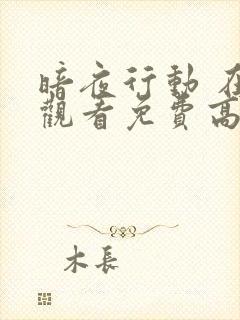 暗夜行動
觀看免費高
木長